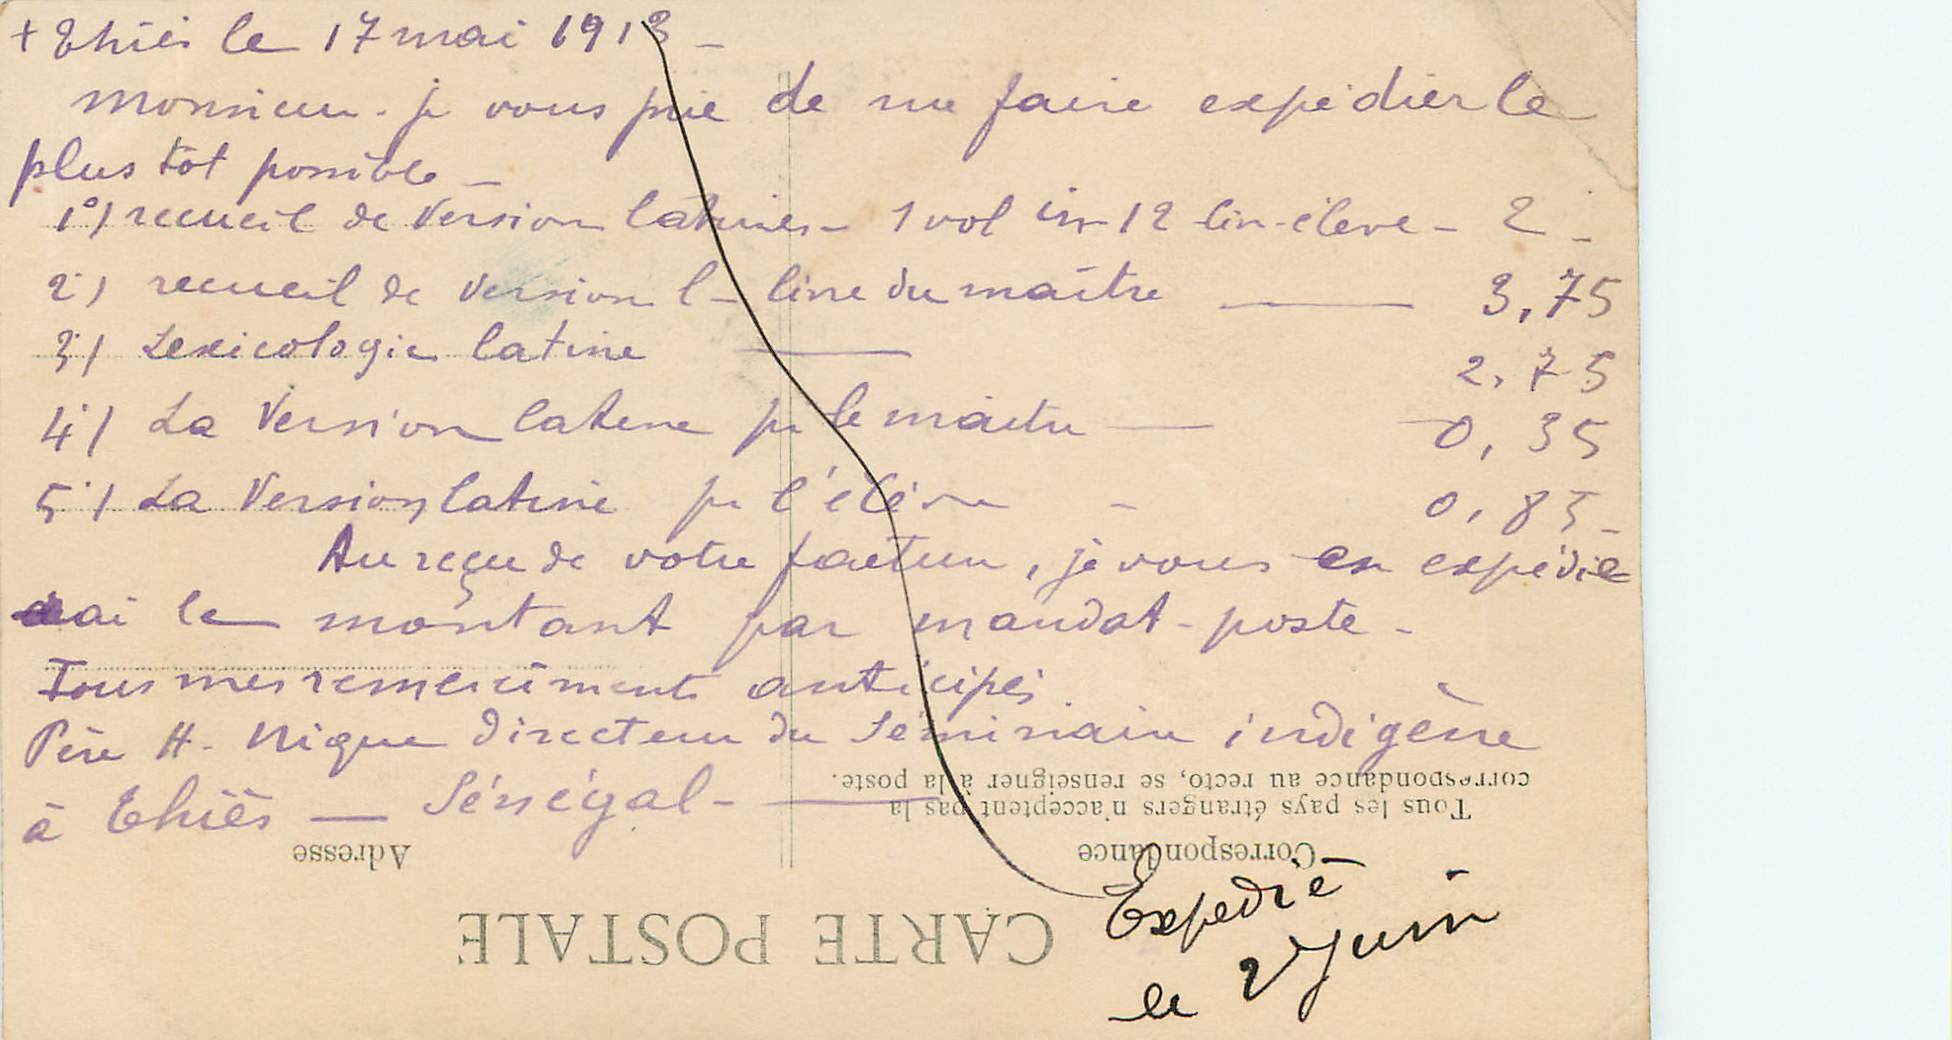 + Thiès le 17 mai 1913 -
Monsieur. je vous prie de me faire expédier le
plus tôt possible -
1°) recueil de Version latines - 1 vol in-12 liv-élève - 2 -
2°) recueil de Version l- livre du maître — 3,75
3°) Lexicologie latine — 2,75
4°) La Version latine pr le maître — 0,35
5°) La Version latine pr l'élève - 0,85 -
Au reçu de votre facture, je vous en expédie
rai le montant par mandat-poste -
Tous mes remerciments anticipés
Père H. Nique directeur du Séminaire indigène
à Thiès — Sénégal - —
Expedié
le 2 Juin
CARTE POSTALE
Correspondance
Tous les pays étrangers n'acceptent pas la
correspondance au recto, se renseigner à la poste.
Adresse